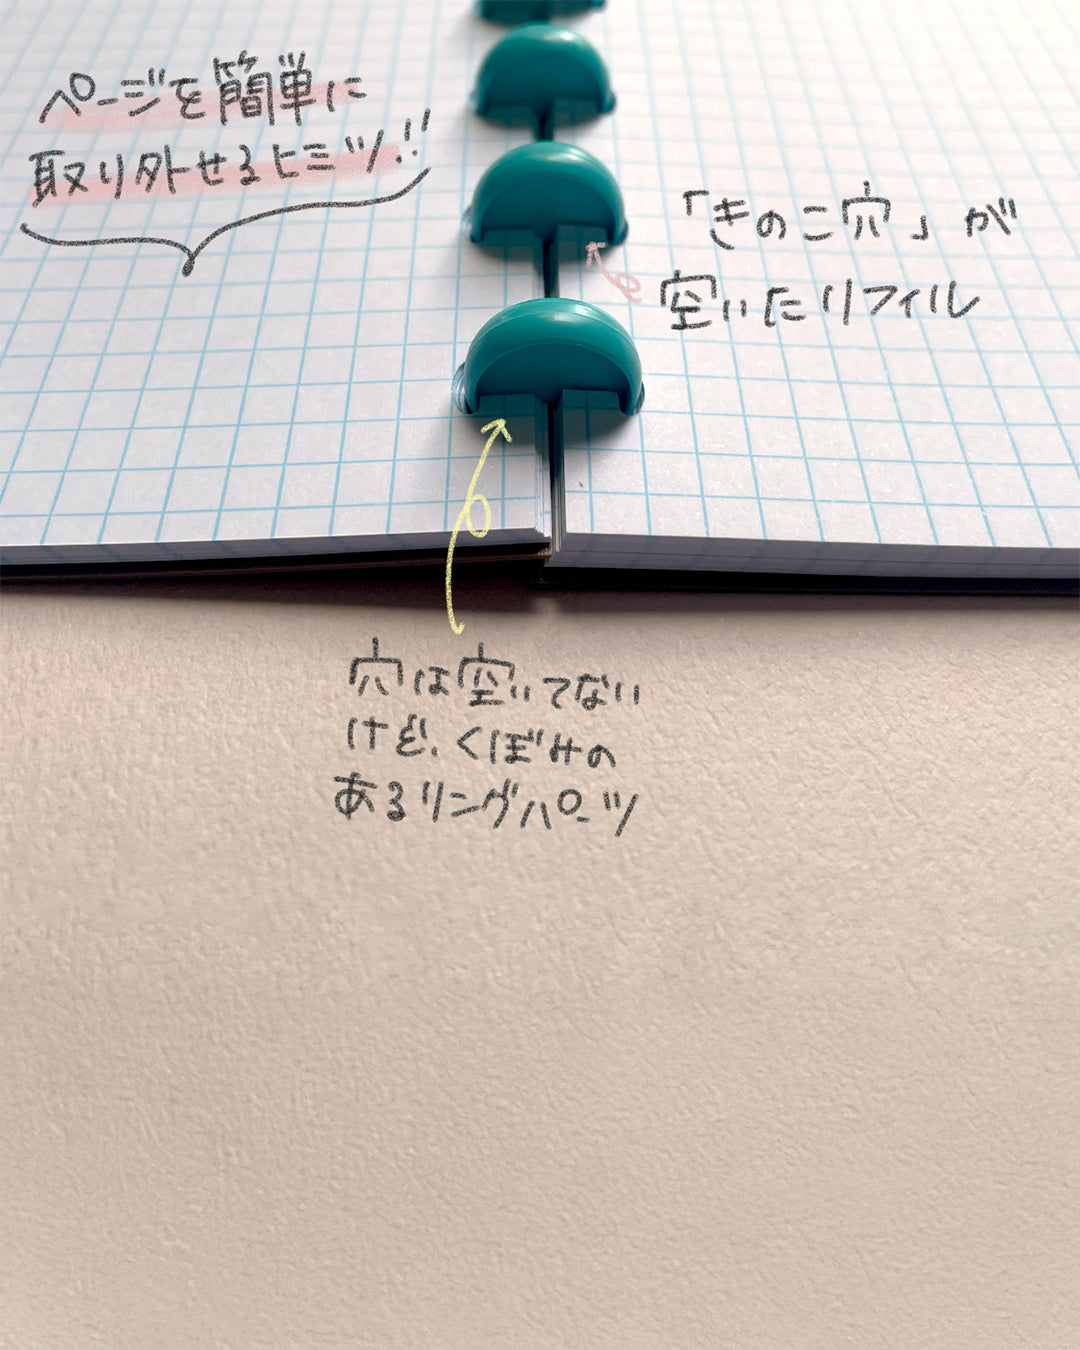 ページを簡単に
取り外せるヒミツ!!
「きのこ穴」が
空いたリフィル
穴は空いてない
けど、くぼみの
あるリングパーツ